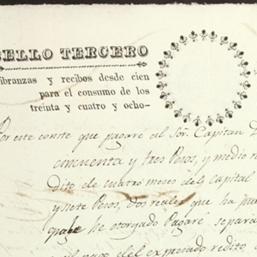 SELLO TERCERO
libranzas y recibos desde cien
para el consumo de los
treinta y cuatro y ocho-
Por este conste que pagaré al Sõr. Capitan D
cincuenta y tres Pesos, y medio re
dito de cuatro meses del capital
y siete Pesos, dos reales que ha
he otorgado Pagaré separa
del expresado redito